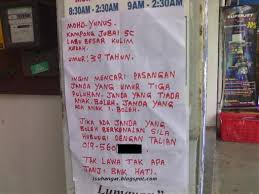 8:30AM - 2:30AM 9AM - 2:30AM
MOHD. YUNUS.
KAMPONG JUBAI SC
LABU BESAR KULIM
KEDAH.
UMUR: 39 TAHUN.
INGIN MENCARI PASANGAN
JANDA YANG UMUR TIGA
PULUHAN. JANDA YANG TIADA
ANAK. BOLEH. JANDA YANG
ADA ANAK 1. BOLEH.
JIKA ADA JANDA YANG
BOLEH BERKENALAN SILA
HUBUNGI DENGAN TALIAN
019-560
TAK LAWA TAK APA
JANJI BAIK HATI.
isuhangat.blogspot.com